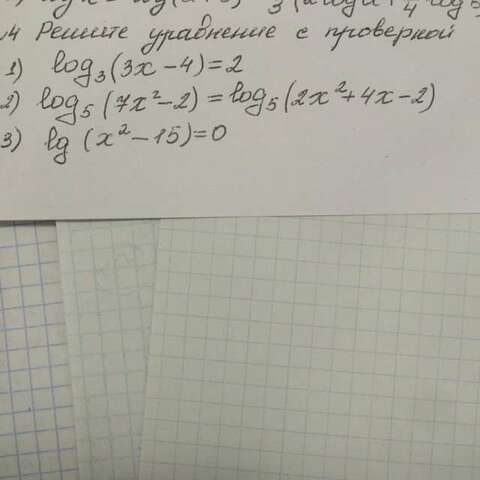 .4 Решите уравнение с проверкой
1) log₃(3x-4)=2
2) log₅(7x²-2)=log₅(2x²+4x-2)
3) lg (x²-15)=0